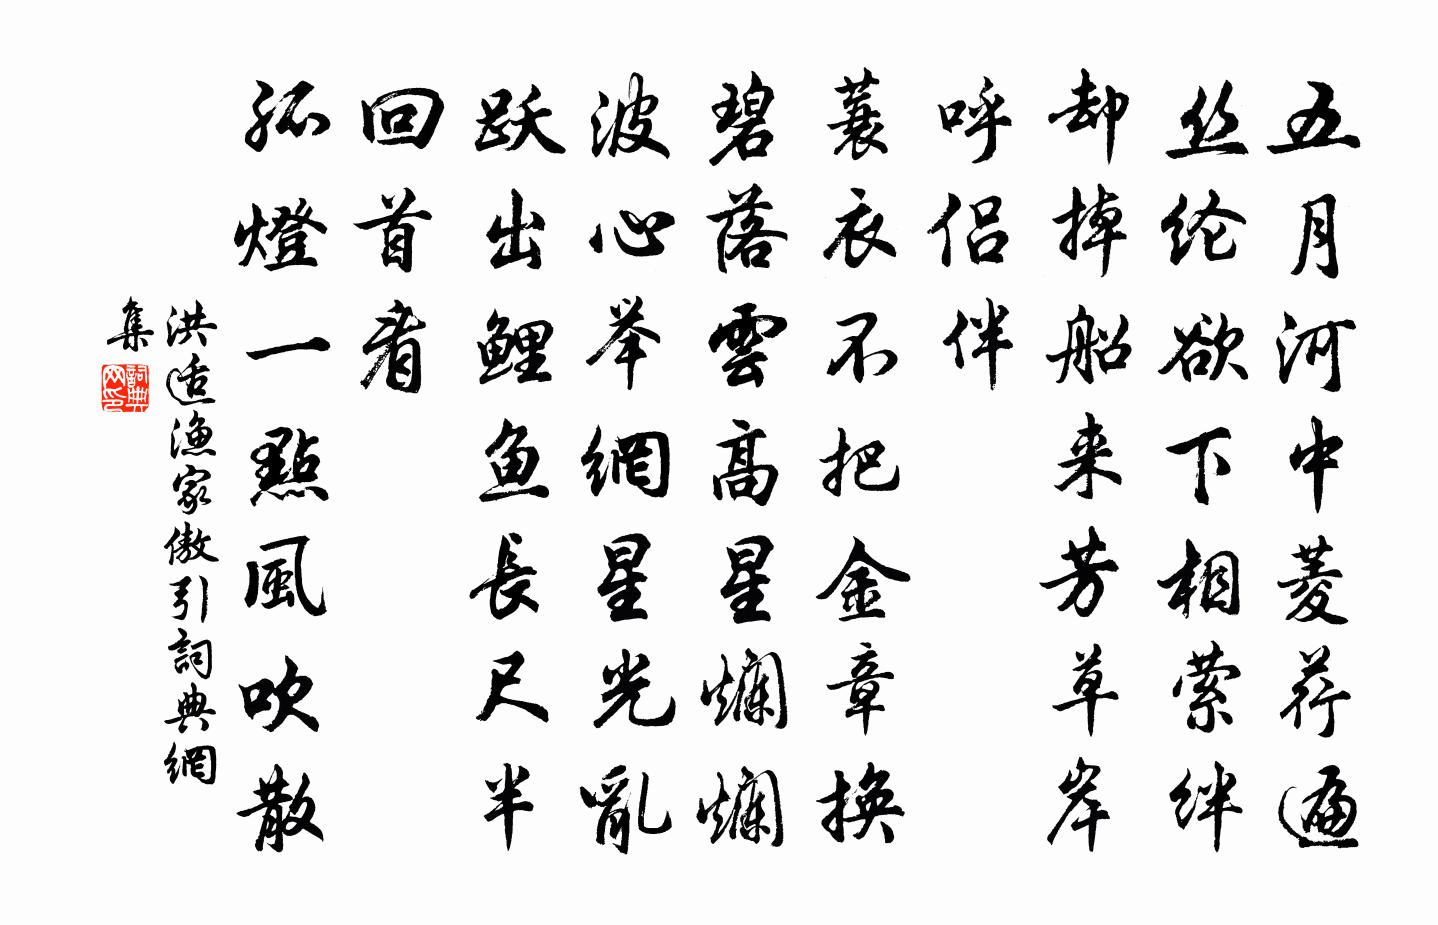 五月河中菱荇遍
丝纶欲下相萦绊
却掉船来芳草岸
呼侣伴
蓑衣不把金章换
碧落雲高星爛爛
波心举網星光亂
跃出鲤鱼長尺半
回首看
孤燈一點風吹散
洪适渔家傲引詞典網
集
詞典
网印